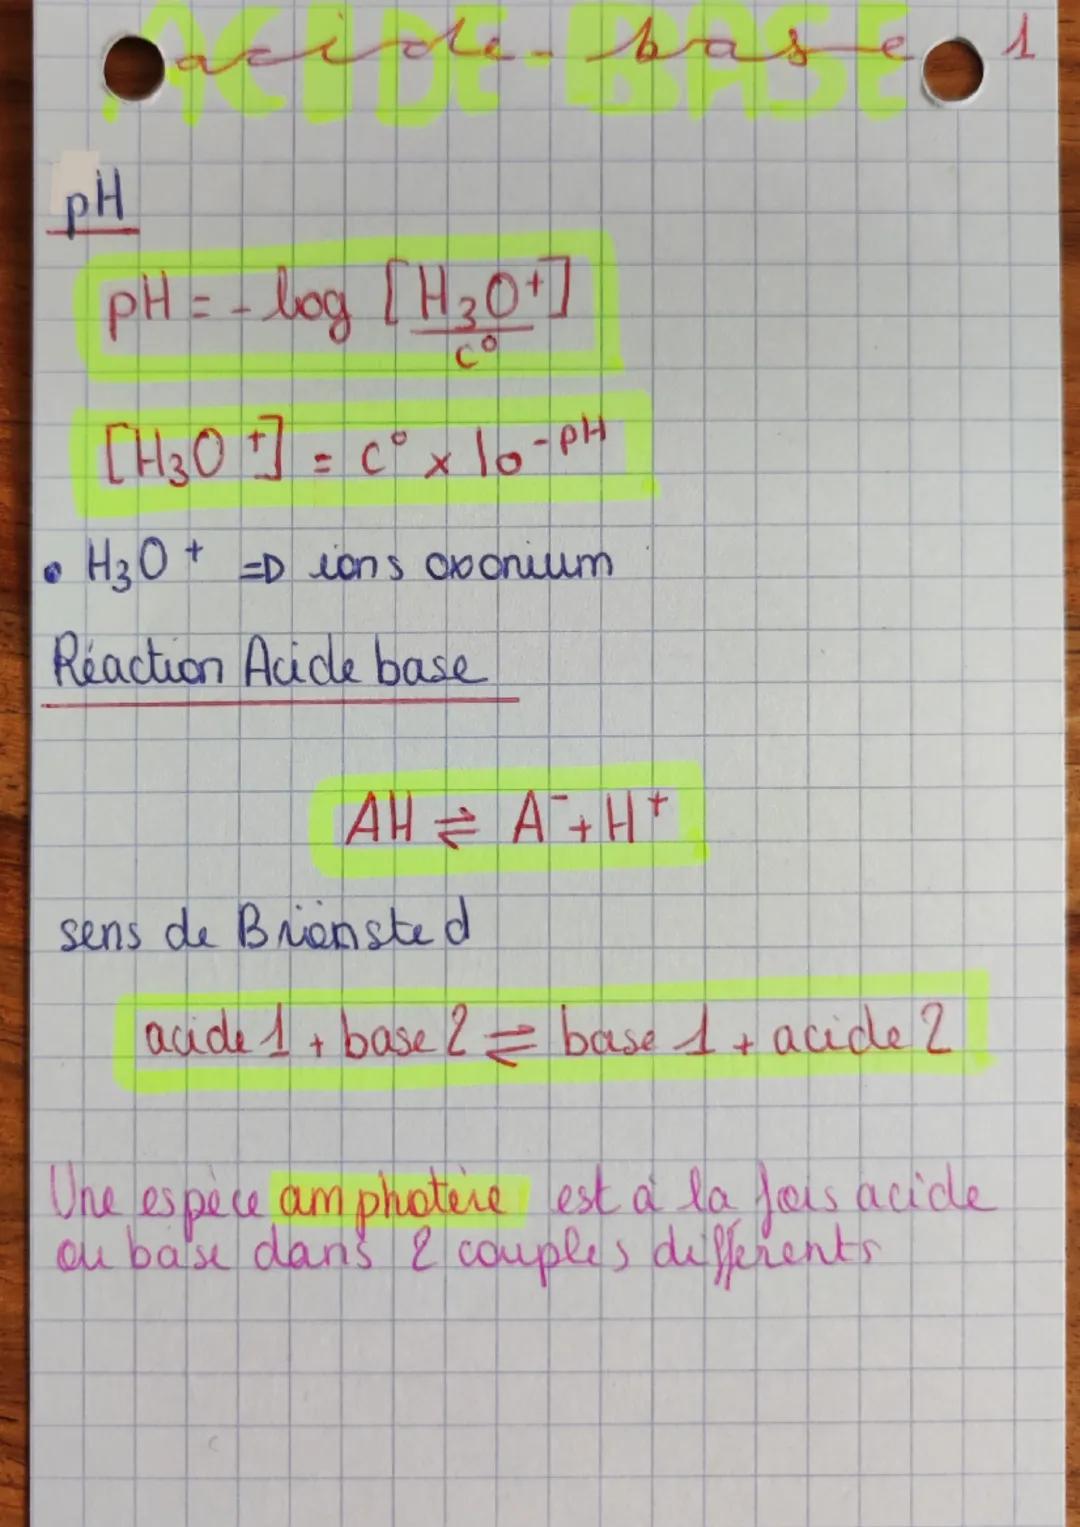 ACIDE-BASE
acide-base 1
pH
pH = - log [H₃O⁺]
c°
[H₃O⁺] = c° x 10^-pH
• H₃O⁺ => ions oxonium
Réaction Acide base
AH ⇌ A⁻ + H⁺
sens de Brionsted
acide 1 + base 2 ⇌ base 1 + acide 2
Une espèce amphotère est à la fois acide
ou base dans 2 couples différents